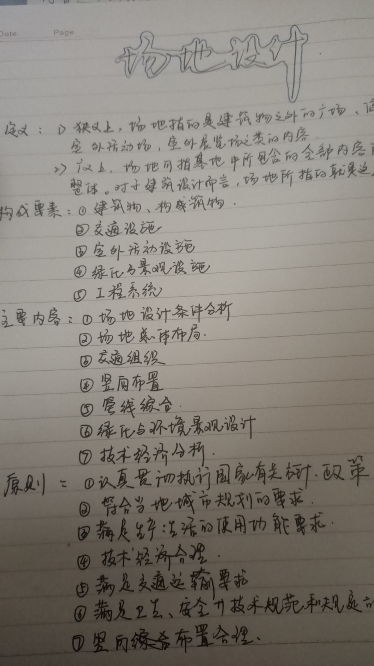 Date Page
场地设计
定义：1) 狭义上，场地指的是建筑物之外的广场、
室外活动场，室外展览场之类的内容.
2) 广义上，场地可指基地中所包含的全部内容
整体。对于建筑设计而言，场地所指的就是这
构成要素：① 建筑物、构筑物.
② 交通设施
③ 室外活动设施
④ 绿化与景观设施
⑤ 工程系统
主要内容：① 场地设计条件分析
② 场地总体布局.
③ 交通组织
④ 竖向布置
⑤ 管线综合.
⑥ 绿化与环境景观设计
⑦ 技术经济分析.
原则：① 认真贯彻执行国家有关方针、政策
② 符合当地城市规划的要求.
③ 满足生产生活的使用功能要求.
④ 技术经济合理.
⑤ 满足交通运输要求
⑥ 满足卫生、安全等技术规范和规定
⑦ 竖向布置合理.